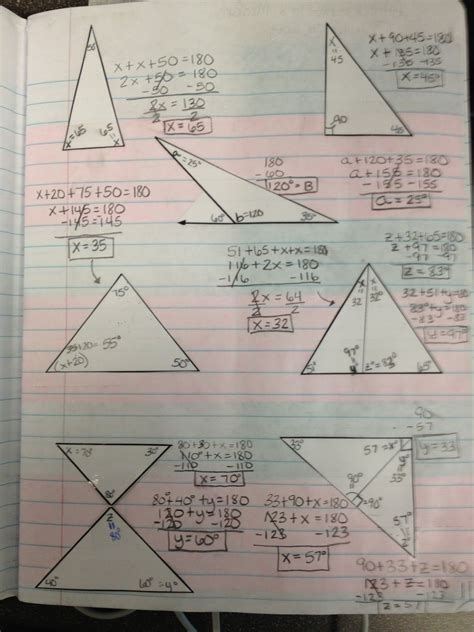 50
x=65
65=x
x+x+50=180
2x+50=180
-50 -50
2x=130
2 2
x=65
x
=
45
90
45
x+90+45=180
x+135=180
-135 -135
x=45°
a=25°
60°
b=120
35°
180
-60
120°=B
a+120+35=180
a+155=180
-155-155
a=25°
x+20+75+50=180
x+145=180
-145=-145
x=35
75°
35+20=55°
(x+20)
50°
51+65+x+x=180
116+2x=180
-116 -116
2x=64
2 2
x=32
x
=
32
x
=
32°
97°
z=83°
65°
z+32+65=180
z+97=180
-97 -97
z=83°
32+51+y=180
83°+y=180
-83
y=97
x=70°
30°
80°
z
=
80
40°
60°=y°
80+30+x=180
110°+x=180
-110 -110
x=70°
80°+40°+y=180
120+y=180
-120 -120
y=60°
33+90+x=180
123+x=180
-123 -123
x=57°
33°
57=x°
90°
=90°
33
57°
90
-57
y=33
90+33+z=180
123+z=180
-123 -123
z=57